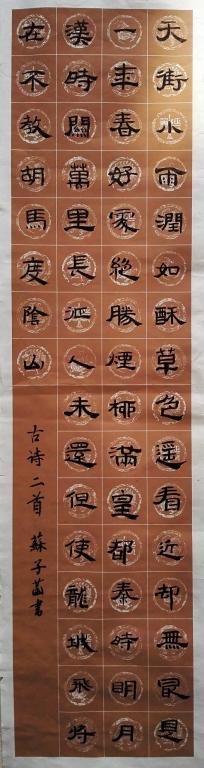 天街小雨潤如酥草色遥看近却無最是
一年春好處絶勝煙柳滿皇都秦時明月
漢時關萬里長征人未還但使龍城飛將
在不教胡馬度陰山
古诗二首 蘇子書